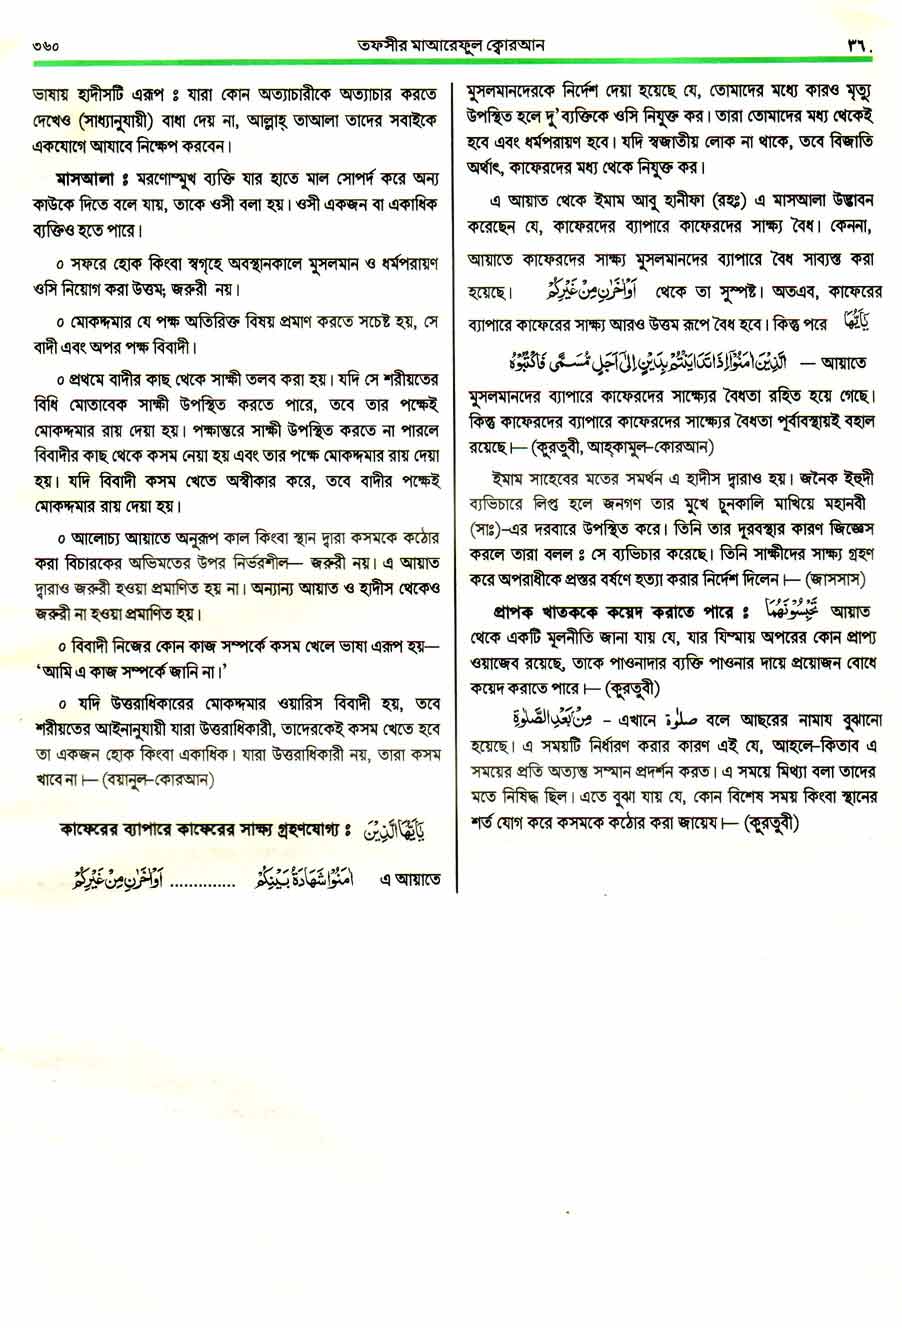 ৩৬০
তফসীর মাআরেফুল ক্বোরআন
٣٦٠
ভাষায় হাদীসটি এরূপ : যারা কোন অত্যাচারীকে অত্যাচার করতে
দেখেও (সাধ্যানুযায়ী) বাধা দেয় না, আল্লাহ্ তাআলা তাদের সবাইকে
একযোগে আযাবে নিক্ষেপ করবেন।
মাসআলা : মরণোম্মুখ ব্যক্তি যার হাতে মাল সোপর্দ করে অন্য
কাউকে দিতে বলে যায়, তাকে ওসী বলা হয়। ওসী একজন বা একাধিক
ব্যক্তিও হতে পারে।
০ সফরে হোক কিংবা স্বগৃহে অবস্থানকালে মুসলমান ও ধর্মপরায়ণ
ওসি নিয়োগ করা উত্তম; জরুরী নয়।
০ মোকদ্দমার যে পক্ষ অতিরিক্ত বিষয় প্রমাণ করতে সচেষ্ট হয়, সে
বাদী এবং অপর পক্ষ বিবাদী।
০ প্রথমে বাদীর কাছ থেকে সাক্ষী তলব করা হয়। যদি সে শরীয়তের
বিধি মোতাবেক সাক্ষী উপস্থিত করতে পারে, তবে তার পক্ষেই
মোকদ্দমার রায় দেয়া হয়। পক্ষান্তরে সাক্ষী উপস্থিত করতে না পারলে
বিবাদীর কাছ থেকে কসম নেয়া হয় এবং তার পক্ষে মোকদ্দমার রায় দেয়া
হয়। যদি বিবাদী কসম খেতে অস্বীকার করে, তবে বাদীর পক্ষেই
মোকদ্দমার রায় দেয়া হয়।
০ আলোচ্য আয়াতে অনুরূপ কাল কিংবা স্থান দ্বারা কসমকে কঠোর
করা বিচারকের অভিমতের উপর নির্ভরশীল— জরুরী নয়। এ আয়াত
দ্বারাও জরুরী হওয়া প্রমাণিত হয় না। অন্যান্য আয়াত ও হাদীস থেকেও
জরুরী না হওয়া প্রমাণিত হয়।
০ বিবাদী নিজের কোন কাজ সম্পর্কে কসম খেলে ভাষা এরূপ হয়—
‘আমি এ কাজ সম্পর্কে জানি না।’
০ যদি উত্তরাধিকারের মোকদ্দমার ওয়ারিস বিবাদী হয়, তবে
শরীয়তের আইনানুযায়ী যারা উত্তরাধিকারী, তাদেরকেই কসম খেতে হবে
তা একজন হোক কিংবা একাধিক। যারা উত্তরাধিকারী নয়, তারা কসম
খাবে না।— (বয়ানুল-কোরআন)
কাফেরের ব্যাপারে কাফেরের সাক্ষ্য গ্রহণযোগ্য : يٰٓاَيُّهَا الَّذِيْنَ
اٰمَنُوْا شَهَادَةُ بَيْنِكُمْ .............. اَوْ اٰخَرٰنِ مِنْ غَيْرِكُمْ এ আয়াতে
মুসলমানদেরকে নির্দেশ দেয়া হয়েছে যে, তোমাদের মধ্যে কারও মৃত্যু
উপস্থিত হলে দু'ব্যক্তিকে ওসি নিযুক্ত কর। তারা তোমাদের মধ্য থেকেই
হবে এবং ধর্মপরায়ণ হবে। যদি স্বজাতীয় লোক না থাকে, তবে বিজাতি
অর্থাৎ, কাফেরদের মধ্য থেকে নিযুক্ত কর।
এ আয়াত থেকে ইমাম আবু হানীফা (রহঃ) এ মাসআলা উদ্ভাবন
করেছেন যে, কাফেরদের ব্যাপারে কাফেরদের সাক্ষ্য বৈধ। কেননা,
আয়াতে কাফেরদের সাক্ষ্য মুসলমানদের ব্যাপারে বৈধ সাব্যস্ত করা
হয়েছে। اَوْ اٰخَرٰنِ مِنْ غَيْرِكُمْ থেকে তা সুস্পষ্ট। অতএব, কাফেরের
ব্যাপারে কাফেরের সাক্ষ্য আরও উত্তম রূপে বৈধ হবে। কিন্তু পরে يٰٓاَيُّهَا
الَّذِيْنَ اٰمَنُوْٓا اِذَا تَدَايَنْتُمْ بِدَيْنٍ اِلٰٓى اَجَلٍ مُّسَمًّى فَاكْتُبُوْهُ — আয়াতে
মুসলমানদের ব্যাপারে কাফেরদের সাক্ষ্যের বৈধতা রহিত হয়ে গেছে।
কিন্তু কাফেরদের ব্যাপারে কাফেরদের সাক্ষ্যের বৈধতা পূর্বাবস্থায়ই বহাল
রয়েছে।— (কুরতুবী, আহ্‌কামুল-কোরআন)
ইমাম সাহেবের মতের সমর্থন এ হাদীস দ্বারাও হয়। জনৈক ইহুদী
ব্যভিচারে লিপ্ত হলে জনগণ তার মুখে চূনকালি মাখিয়ে মহানবী
(সাঃ)-এর দরবারে উপস্থিত করে। তিনি তার দূরবস্থার কারণ জিজ্ঞেস
করলে তারা বলল : সে ব্যভিচার করেছে। তিনি সাক্ষীদের সাক্ষ্য গ্রহণ
করে অপরাধীকে প্রস্তর বর্ষণে হত্যা করার নির্দেশ দিলেন।— (জাসসাস)
প্রাপক খাতককে কয়েদ করাতে পারে : تَحْبِسُوْنَهُمَا আয়াত
থেকে একটি মূলনীতি জানা যায় যে, যার যিম্মায় অপরের কোন প্রাপ্য
ওয়াজেব রয়েছে, তাকে পাওনাদার ব্যক্তি পাওনার দায়ে প্রয়োজন বোধে
কয়েদ করাতে পারে।— (কুরতুবী)
مِنْ بَعْدِ الصَّلٰوةِ - এখানে صلٰوة বলে আছরের নামায বুঝানো
হয়েছে। এ সময়টি নির্ধারণ করার কারণ এই যে, আহলে-কিতাব এ
সময়ের প্রতি অত্যন্ত সম্মান প্রদর্শন করত। এ সময়ে মিথ্যা বলা তাদের
মতে নিষিদ্ধ ছিল। এতে বুঝা যায় যে, কোন বিশেষ সময় কিংবা স্থানের
শর্ত যোগ করে কসমকে কঠোর করা জায়েয।— (কুরতুবী)